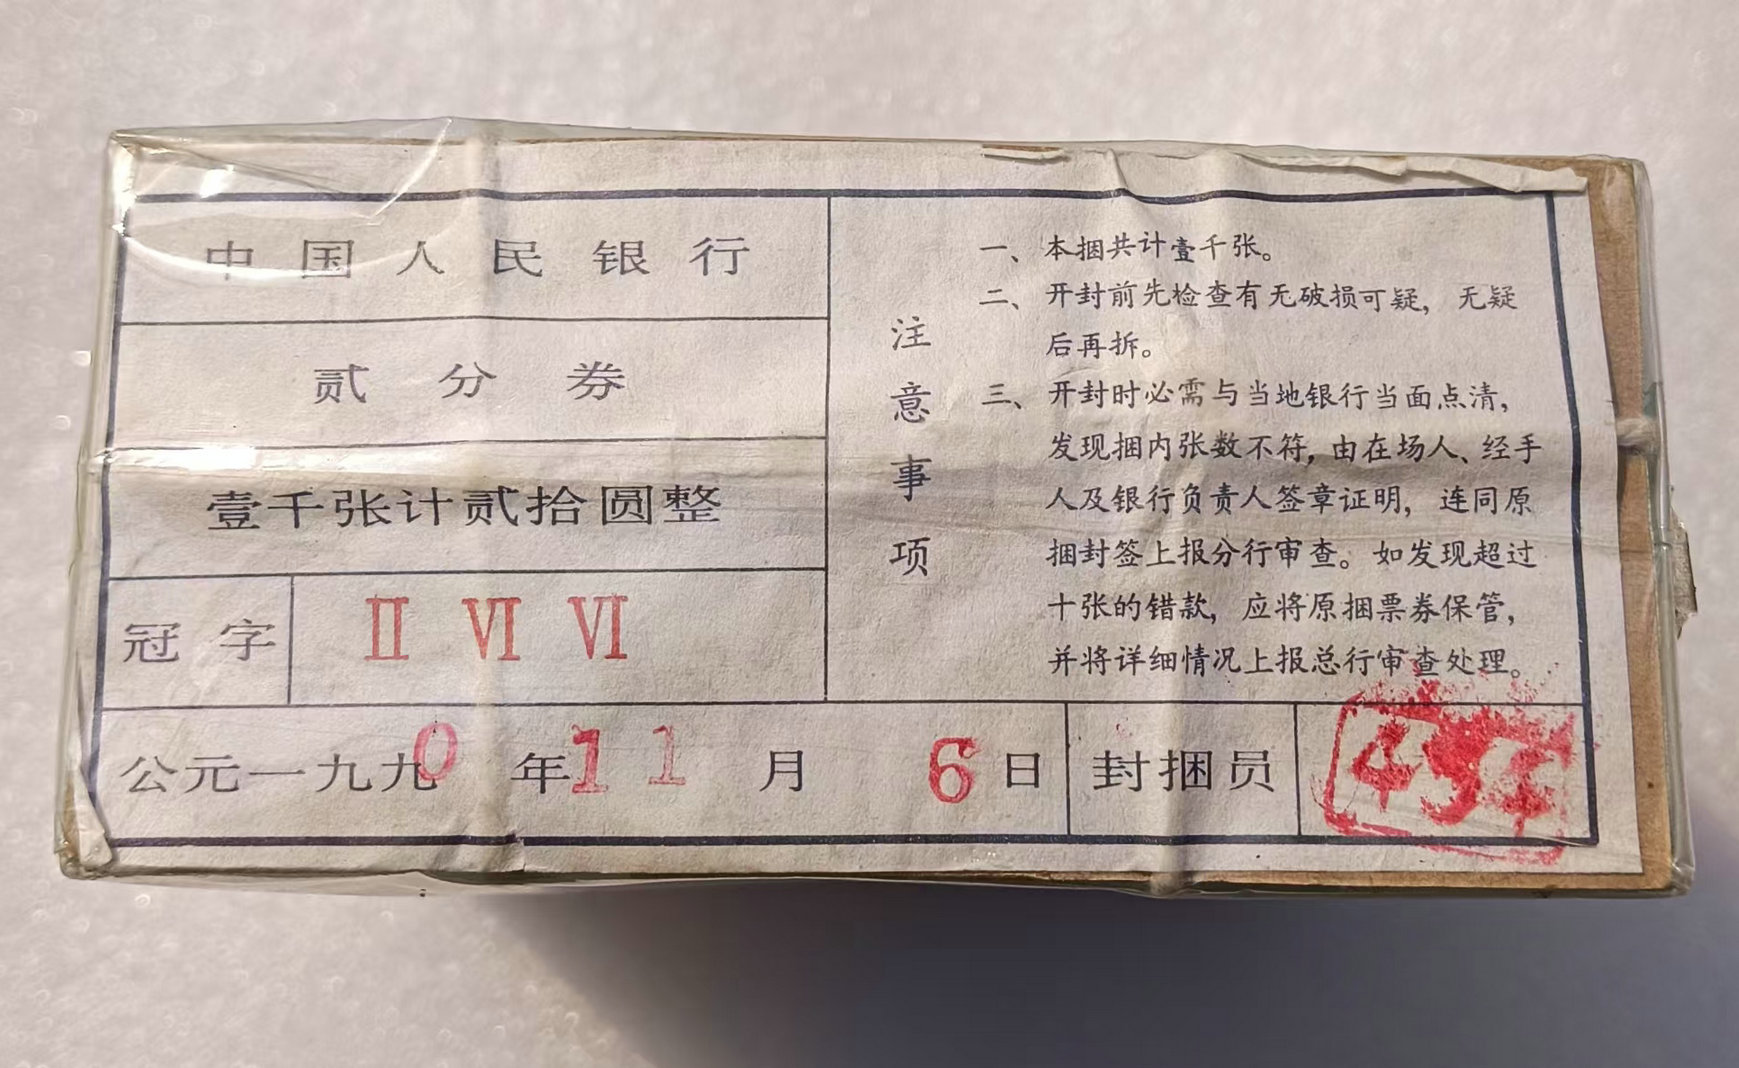 中国人民银行
贰分券
壹千张计贰拾圆整
冠字 Ⅱ Ⅵ Ⅵ
注意事项
一、本捆共计壹千张。
二、开封前先检查有无破损可疑，无疑
后再拆。
三、开封时必需与当地银行当面点清，
发现捆内张数不符，由在场人、经手
人及银行负责人签章证明，连同原
捆封签上报分行审查。如发现超过
十张的错款，应将原捆票券保管，
并将详细情况上报总行审查处理。
公元一九九0年11月6日 封捆员